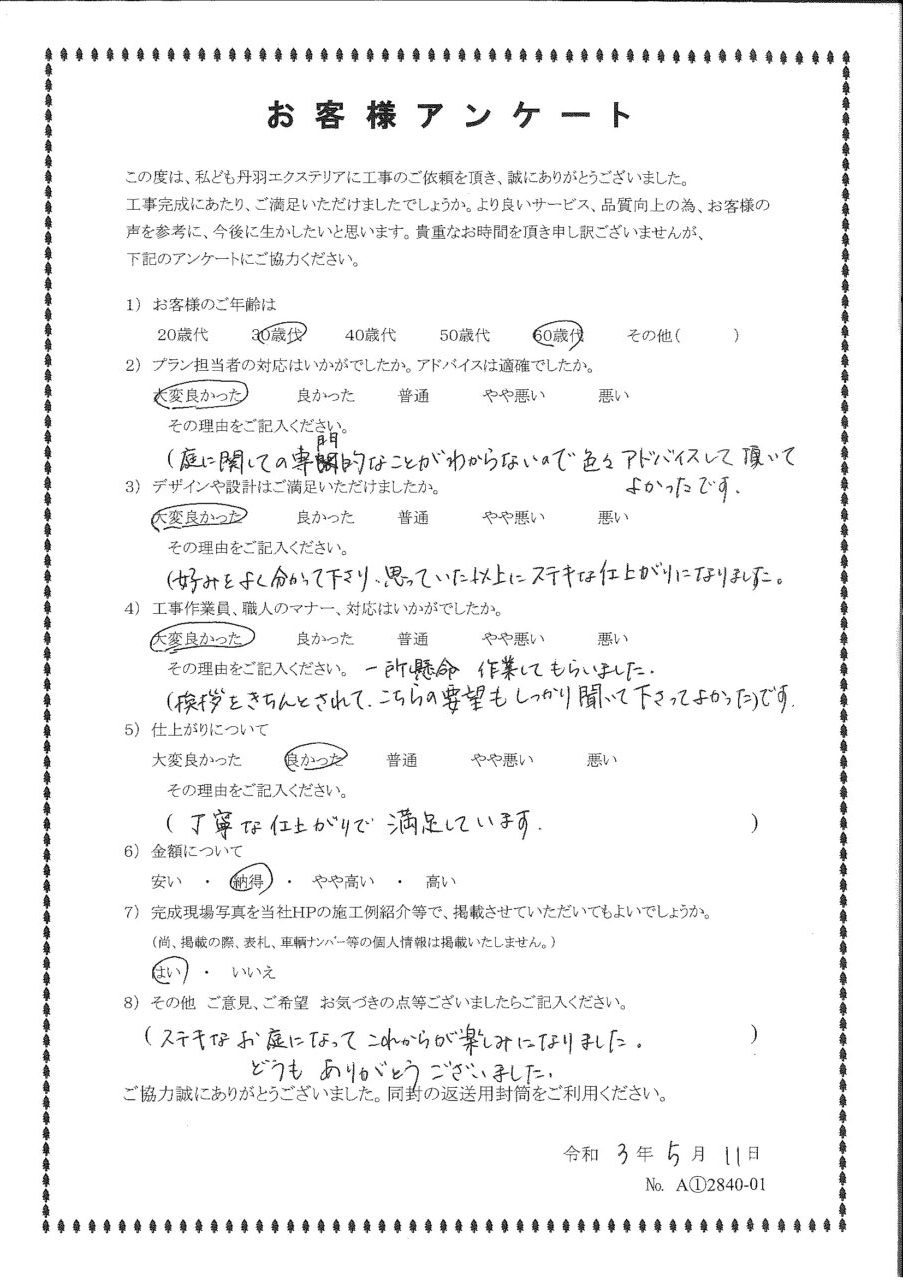 お客様アンケート
この度は、私ども丹羽エクステリアに工事のご依頼を頂き、誠にありがとうございました。
工事完成にあたり、ご満足いただけましたでしょうか。より良いサービス、品質向上の為、お客様の
声を参考に、今後に生かしたいと思います。貴重なお時間を頂き申し訳ございませんが、
下記のアンケートにご協力ください。
1）お客様のご年齢は
20歳代 30歳代 40歳代 50歳代 60歳代 その他( )
2）プラン担当者の対応はいかがでしたか。アドバイスは適確でしたか。
大変良かった 良かった 普通 やや悪い 悪い
その理由をご記入ください。
(庭に関しての専門的なことがわからないので色々アドバイスして頂いて
よかったです.
3）デザインや設計はご満足いただけましたか。
大変良かった 良かった 普通 やや悪い 悪い
その理由をご記入ください。
(好みをよく分かって下さり、思っていた以上にステキな仕上がりになりました。
4）工事作業員、職人のマナー、対応はいかがでしたか。
大変良かった 良かった 普通 やや悪い 悪い
その理由をご記入ください。 一所懸命 作業してもらいました.
(挨拶をきちんとされて、こちらの要望もしっかり聞いて下さってよかった)です.
5）仕上がりについて
大変良かった 良かった 普通 やや悪い 悪い
その理由をご記入ください。
( 丁寧な仕上がりで 満足しています. )
6）金額について
安い ・ 納得 ・ やや高い ・ 高い
7）完成現場写真を当社HPの施工例紹介等で、掲載させていただいてもよいでしょうか。
（尚、掲載の際、表札、車輌ナンバー等の個人情報は掲載いたしません。）
はい ・ いいえ
8）その他 ご意見、ご希望 お気づきの点等ございましたらご記入ください。
(ステキなお庭になって これからが楽しみになりました. )
どうも ありがとうございました.
ご協力誠にありがとうございました。同封の返送用封筒をご利用ください。
令和 3年 5月 11日
№ A①2840-01